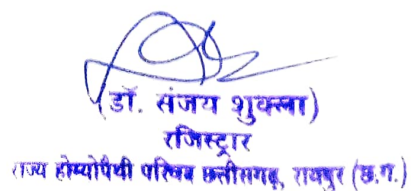 (डॉ. संजय शुक्ला)
रजिस्ट्रार
राज्य होम्योपैथी परिषद छत्तीसगढ़, रायपुर (छ.ग.)